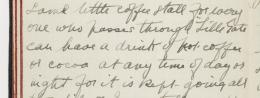 some little coffee stall for every
one who passes through Lille Gate
can have a drink of hot coffee
or cocoa at any time of day or
night for it is kept going all